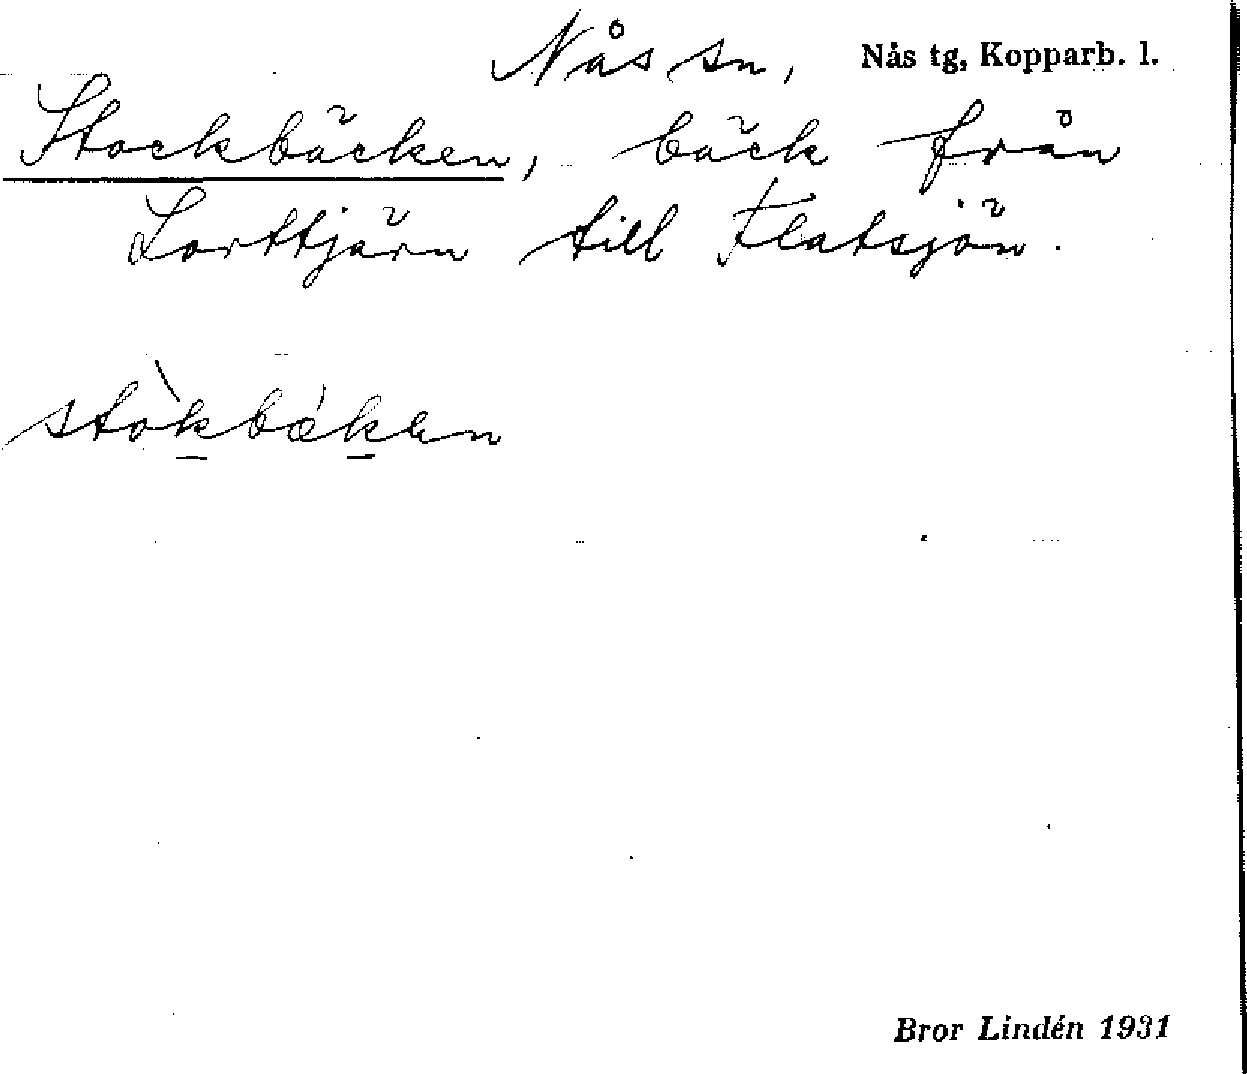 Nås sn, Nås tg, Kopparb. l.
Stockbäcken, bäck från
Lorttjärn till Flatsjön.
stòkbǽkən
Bror Lindén 1931